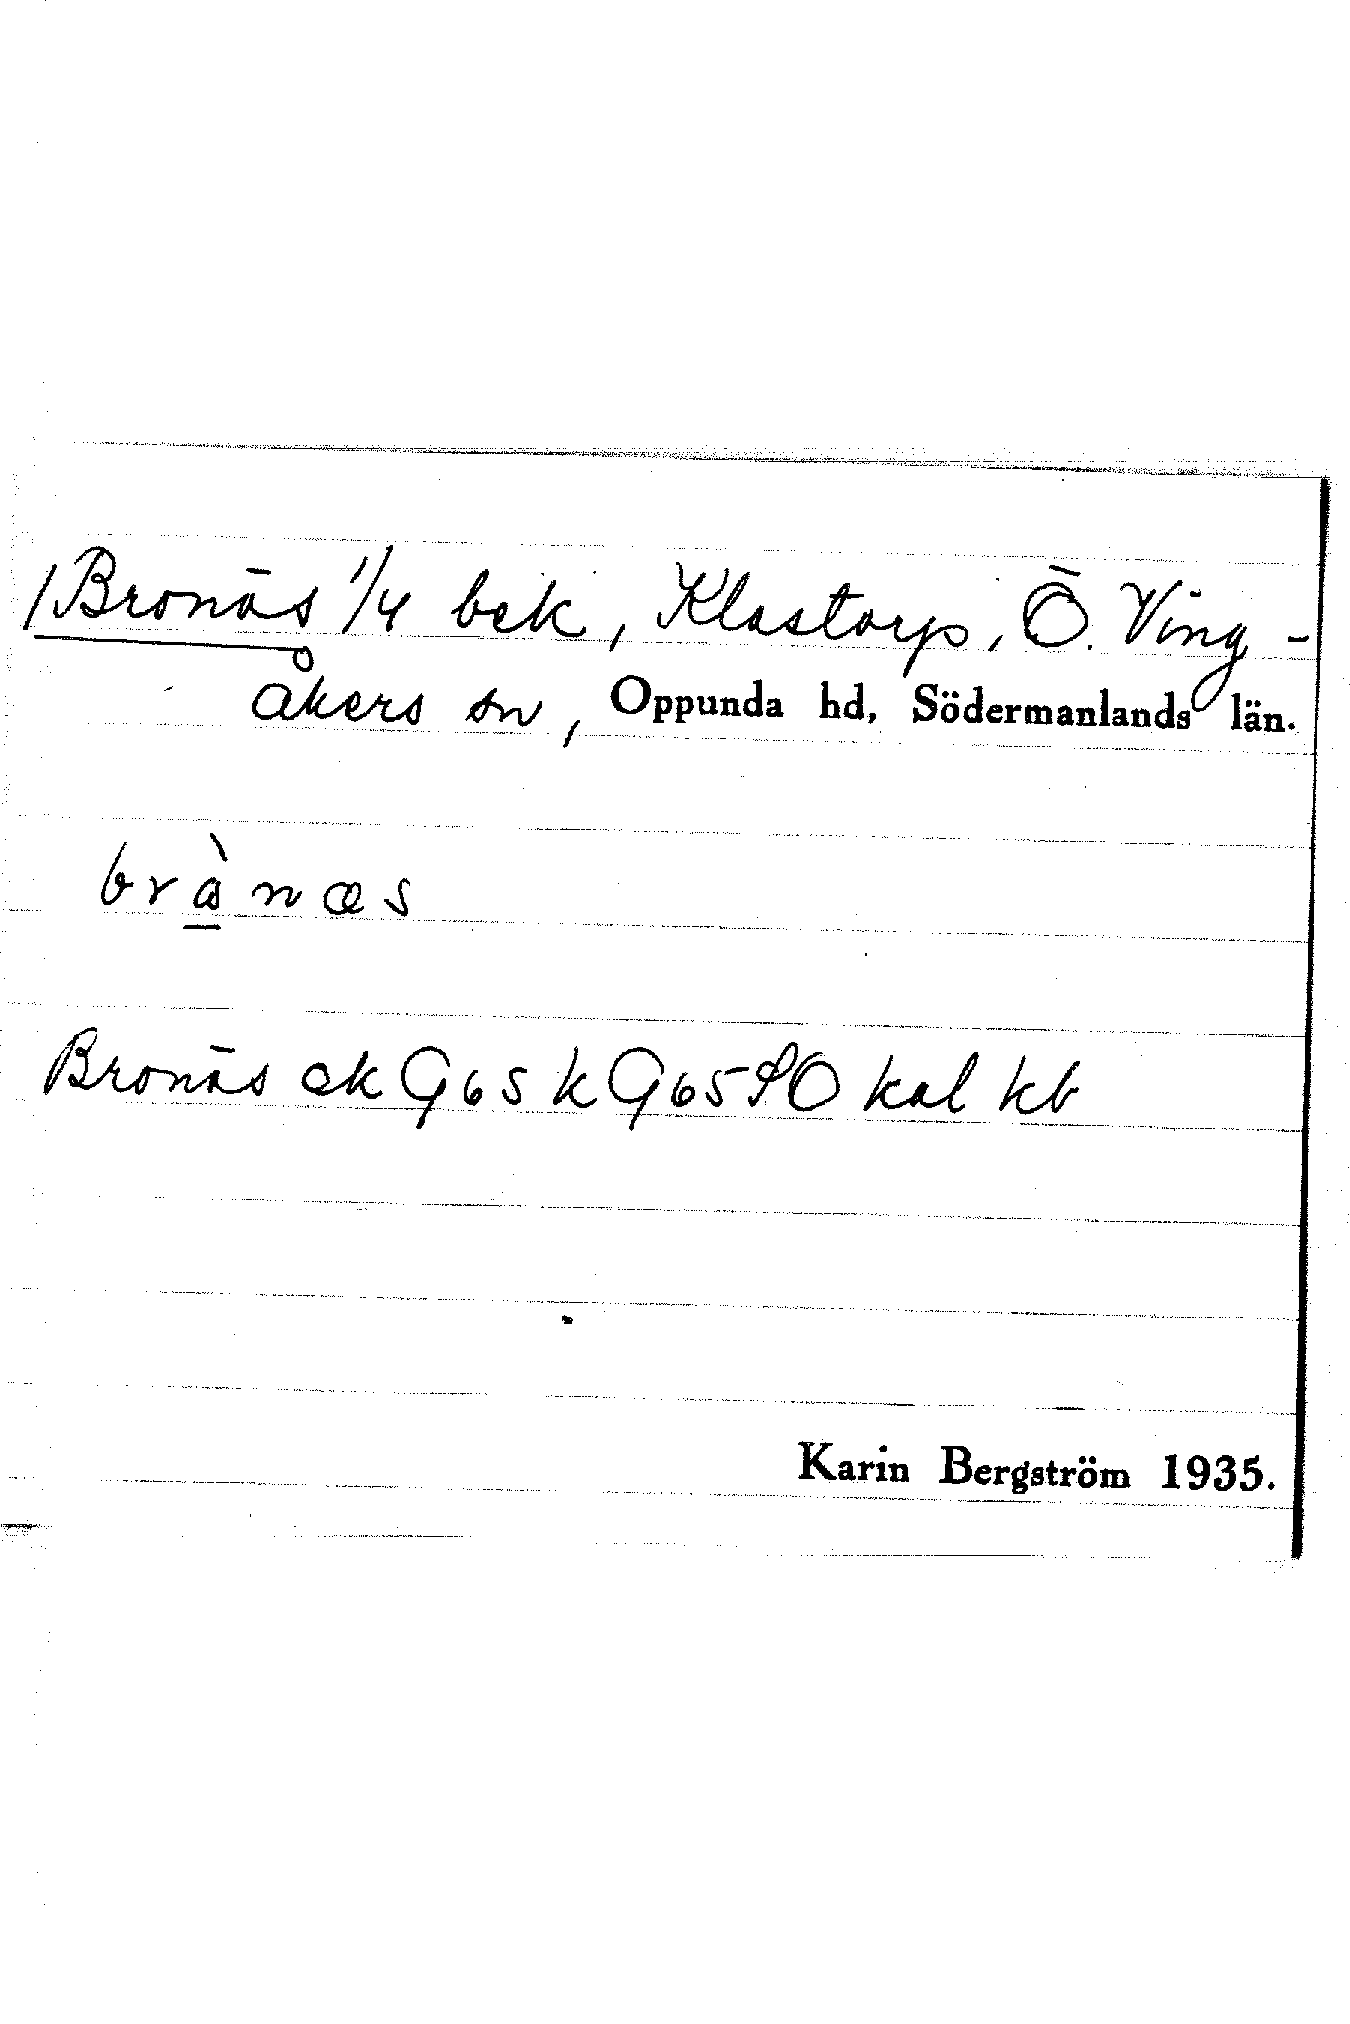 /Bronäs 1/4 bek, Klastorp, Ö. Ving-
åkers sn, Oppunda hd, Södermanlands län.
brànæs
Bronäs ek G65 k G65 SO kal kb
Karin Bergström 1935.